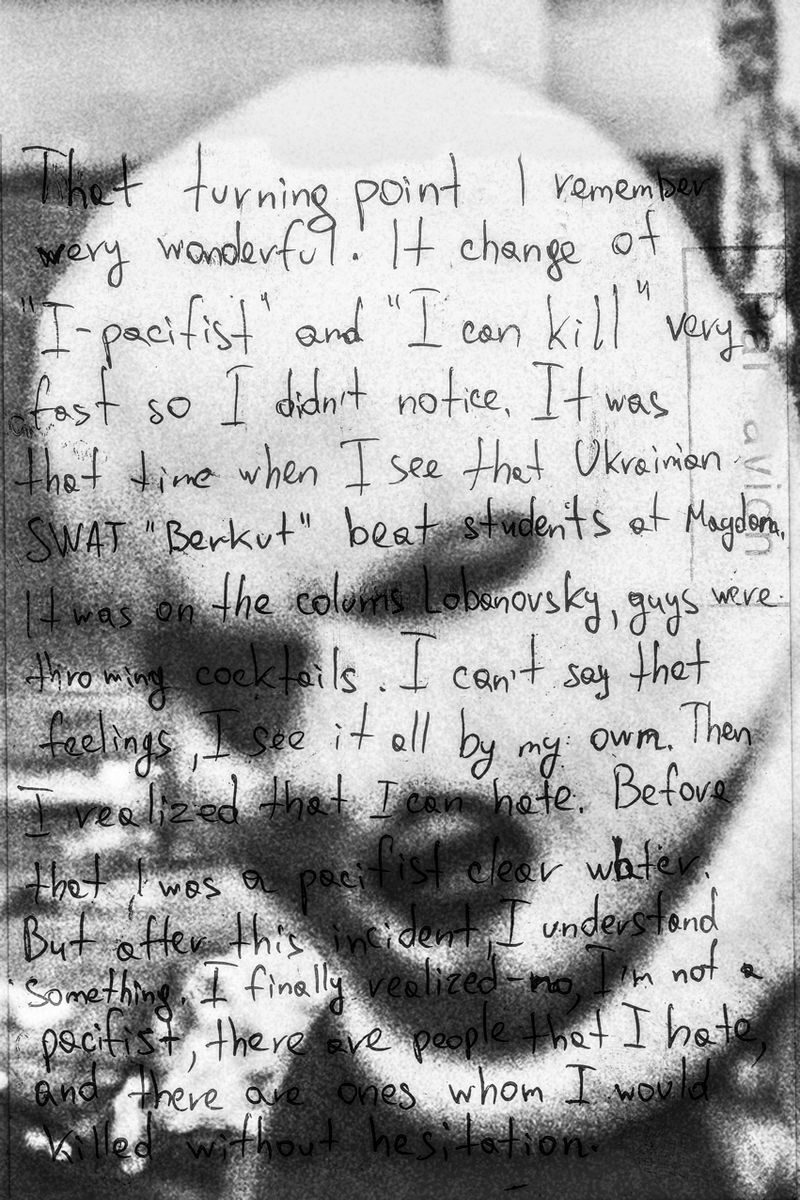 That turning point I remember
wery wonderful. It change of
"I-pacifist" and "I can kill" very
fast so I didn't notice. It was
that time when I see that Ukrainian
SWAT "Berkut" beat students at Magdan,
It was on the colums Lobanovsky, guys were
throming cocktails. I can't say that
feelings, I see it all by my own. Then
I realized that I can hate. Before
that I was a pacifist clear water.
But after this incident, I understand
something. I finally realized-no, I'm not a
pacifist, there are people that I hate,
and there are ones whom I would
killed without hesitation.
Par avion